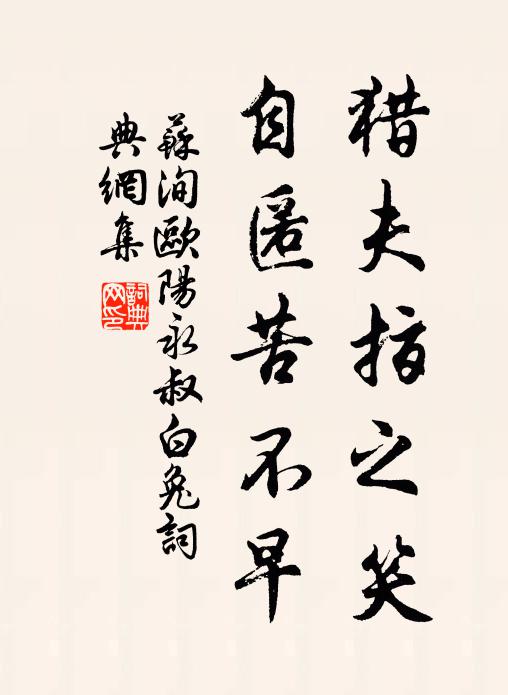 猎夫指之笑
自匿苦不早
蘇洵歐陽永叔白兔詞
典網集
詞典网印